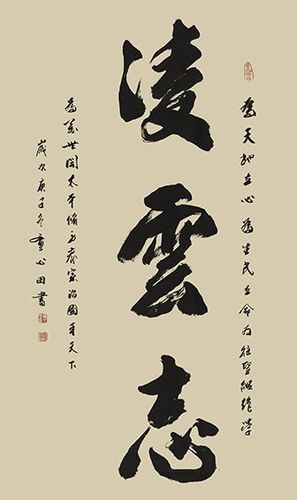 為天地立心為生民立命為往聖繼絕學
凌雲志
為萬世開太平修身齊家治國平天下
歲次庚子冬童心田書